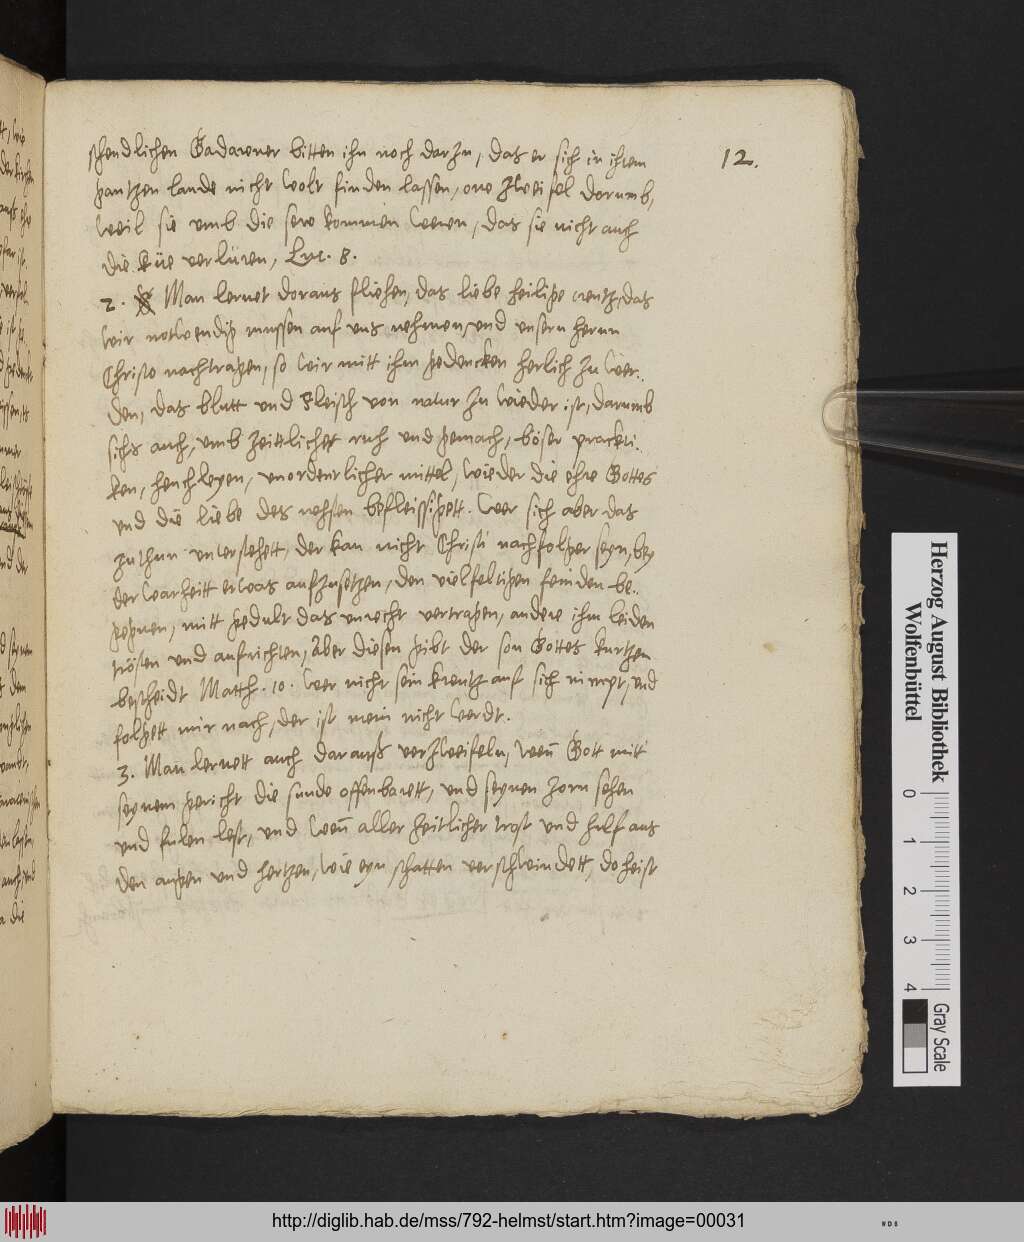 12.
schendlichen Gadarener bitten ihn noch darzu, das er sich in ihrem
gantzen lande nicht wolt finden lassen, one zweifel dorumb,
weil sie umb die sew kommen weren, das sie nicht auch
die küe verlüren, Luc. 8.
2. Man lernet doraus fliehen, das liebe heilige creutz, das
wir notwendig mussen auf uns nehmen, und unsern herrn
Christo nachtragen, so wir mitt ihm gedencken herlich zu wer..
den, das blutt und fleisch von natur zu wieder ist, darumb
sichs auch, umb zeittlicher ruh und gemach, böser prackti..
ken, heucheleyen, unordentlicher mittel, wieder die ehre Gottes
und die liebe des nehsten befleissigett. Wer sich aber das
zuthun unterstehett, der kan nicht Christi nachfolger seyn, bey
der warheitt etwas aufzusetzen, den vielfeltigen feinden be..
gegnen, mitt gedult das unrecht vertragen, andere ihm leiden
trösten und aufrichten, Aber diesen gibt der son Gottes kurtzen
bescheidt Matth. 10. Wer nicht sein kreutz auf sich nimpt, und
folgett mir nach, der ist mein nicht werdt.
3. Man lernett auch darauß verzweifeln, wen̄ Gott mitt
seynem gericht die sunde offenbarett, und seynen zorn sehen
und fulen lest, und wen̄ aller zeitlicher trost und hulf aus
den augen und hertzen, wie eyn schatten verschwindett, do heist
Herzog August Bibliothek
Wolfenbüttel
0 1 2 3 4
Gray Scale
http://diglib.hab.de/mss/792-helmst/start.htm?image=00031